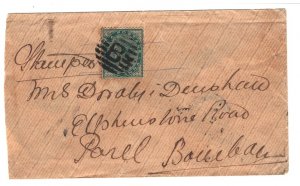 Stamped
Mrs Dorabji Dinshaw
Elphinstone Road
Parel Bombay